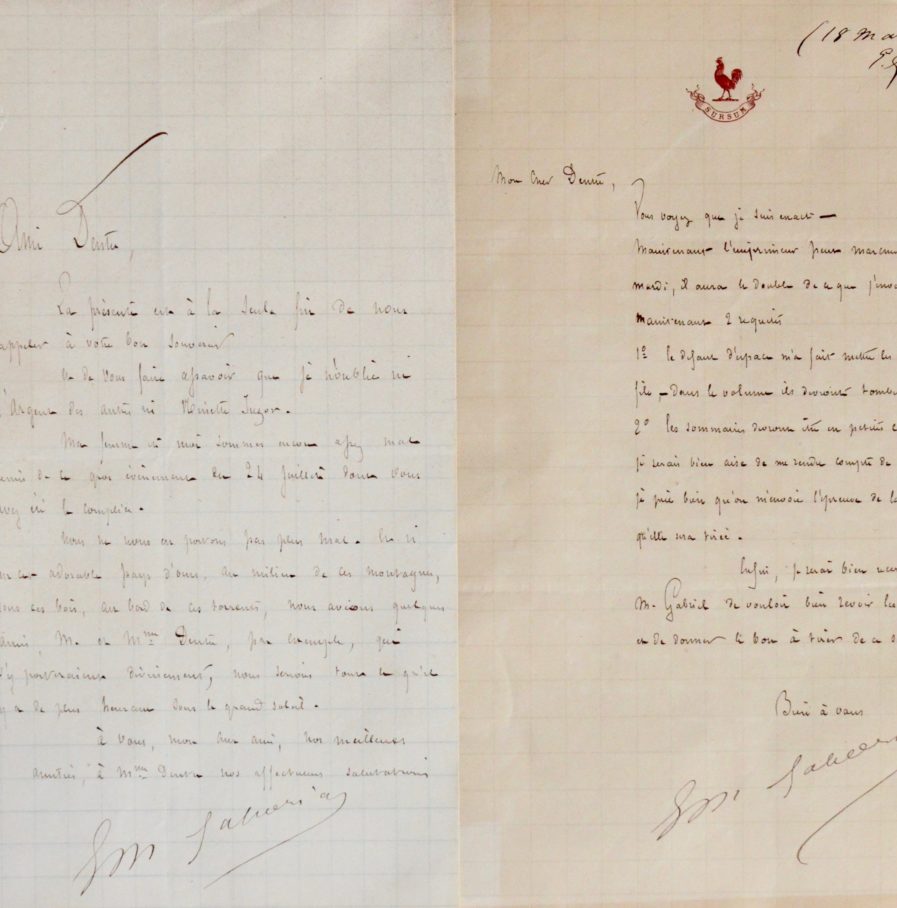 Ami Dentu,
La présente est à la seule fin de nous
rappeler à votre bon souvenir
et de vous faire assavoir que je n'oublie ni
l'Argent des autres ni
Ma femme et moi sommes encore assez mal
remis de ce gros événement du 24 juillet dont vous
avez été le complice.
Nous ne nous en portons pas plus mal. Et si
adorable pays d'ours, au milieu de ces montagnes,
dans ces bois, au bord de ces torrents, nous avions quelques
amis, M. et Mme Dentu, par exemple, qui
s'y porteraient divinement, nous serions tout ce qu'il
y a de plus heureux sous le grand soleil.
à vous, mon cher ami, nos meilleures
amitiés, à Mme Dentu nos affectueuses salutations
Em Gaboriau
(18 Ma
SURSUM
Mon cher Dentu,
Vous voyez que je suis exact —
Maintenant l'imprimeur peut marche
mardi, il aura le double de ce que j'envo
Maintenant 2 requêtes
1º le défaut d'espace m'a fait mettre les
file, — Dans le volume ils devront tombe
2º les sommaires devront être en petites c
je serais bien aise de me rendre compte de
je prie bien qu'on m'envoie l'épreuve de la
qu'elle sera tirée.
Enfin, je serai bien recon
M. Gabriel de vouloir bien revoir les
et de donner le bon à tirer de ce s
Bien à vous
Em Gaboriau